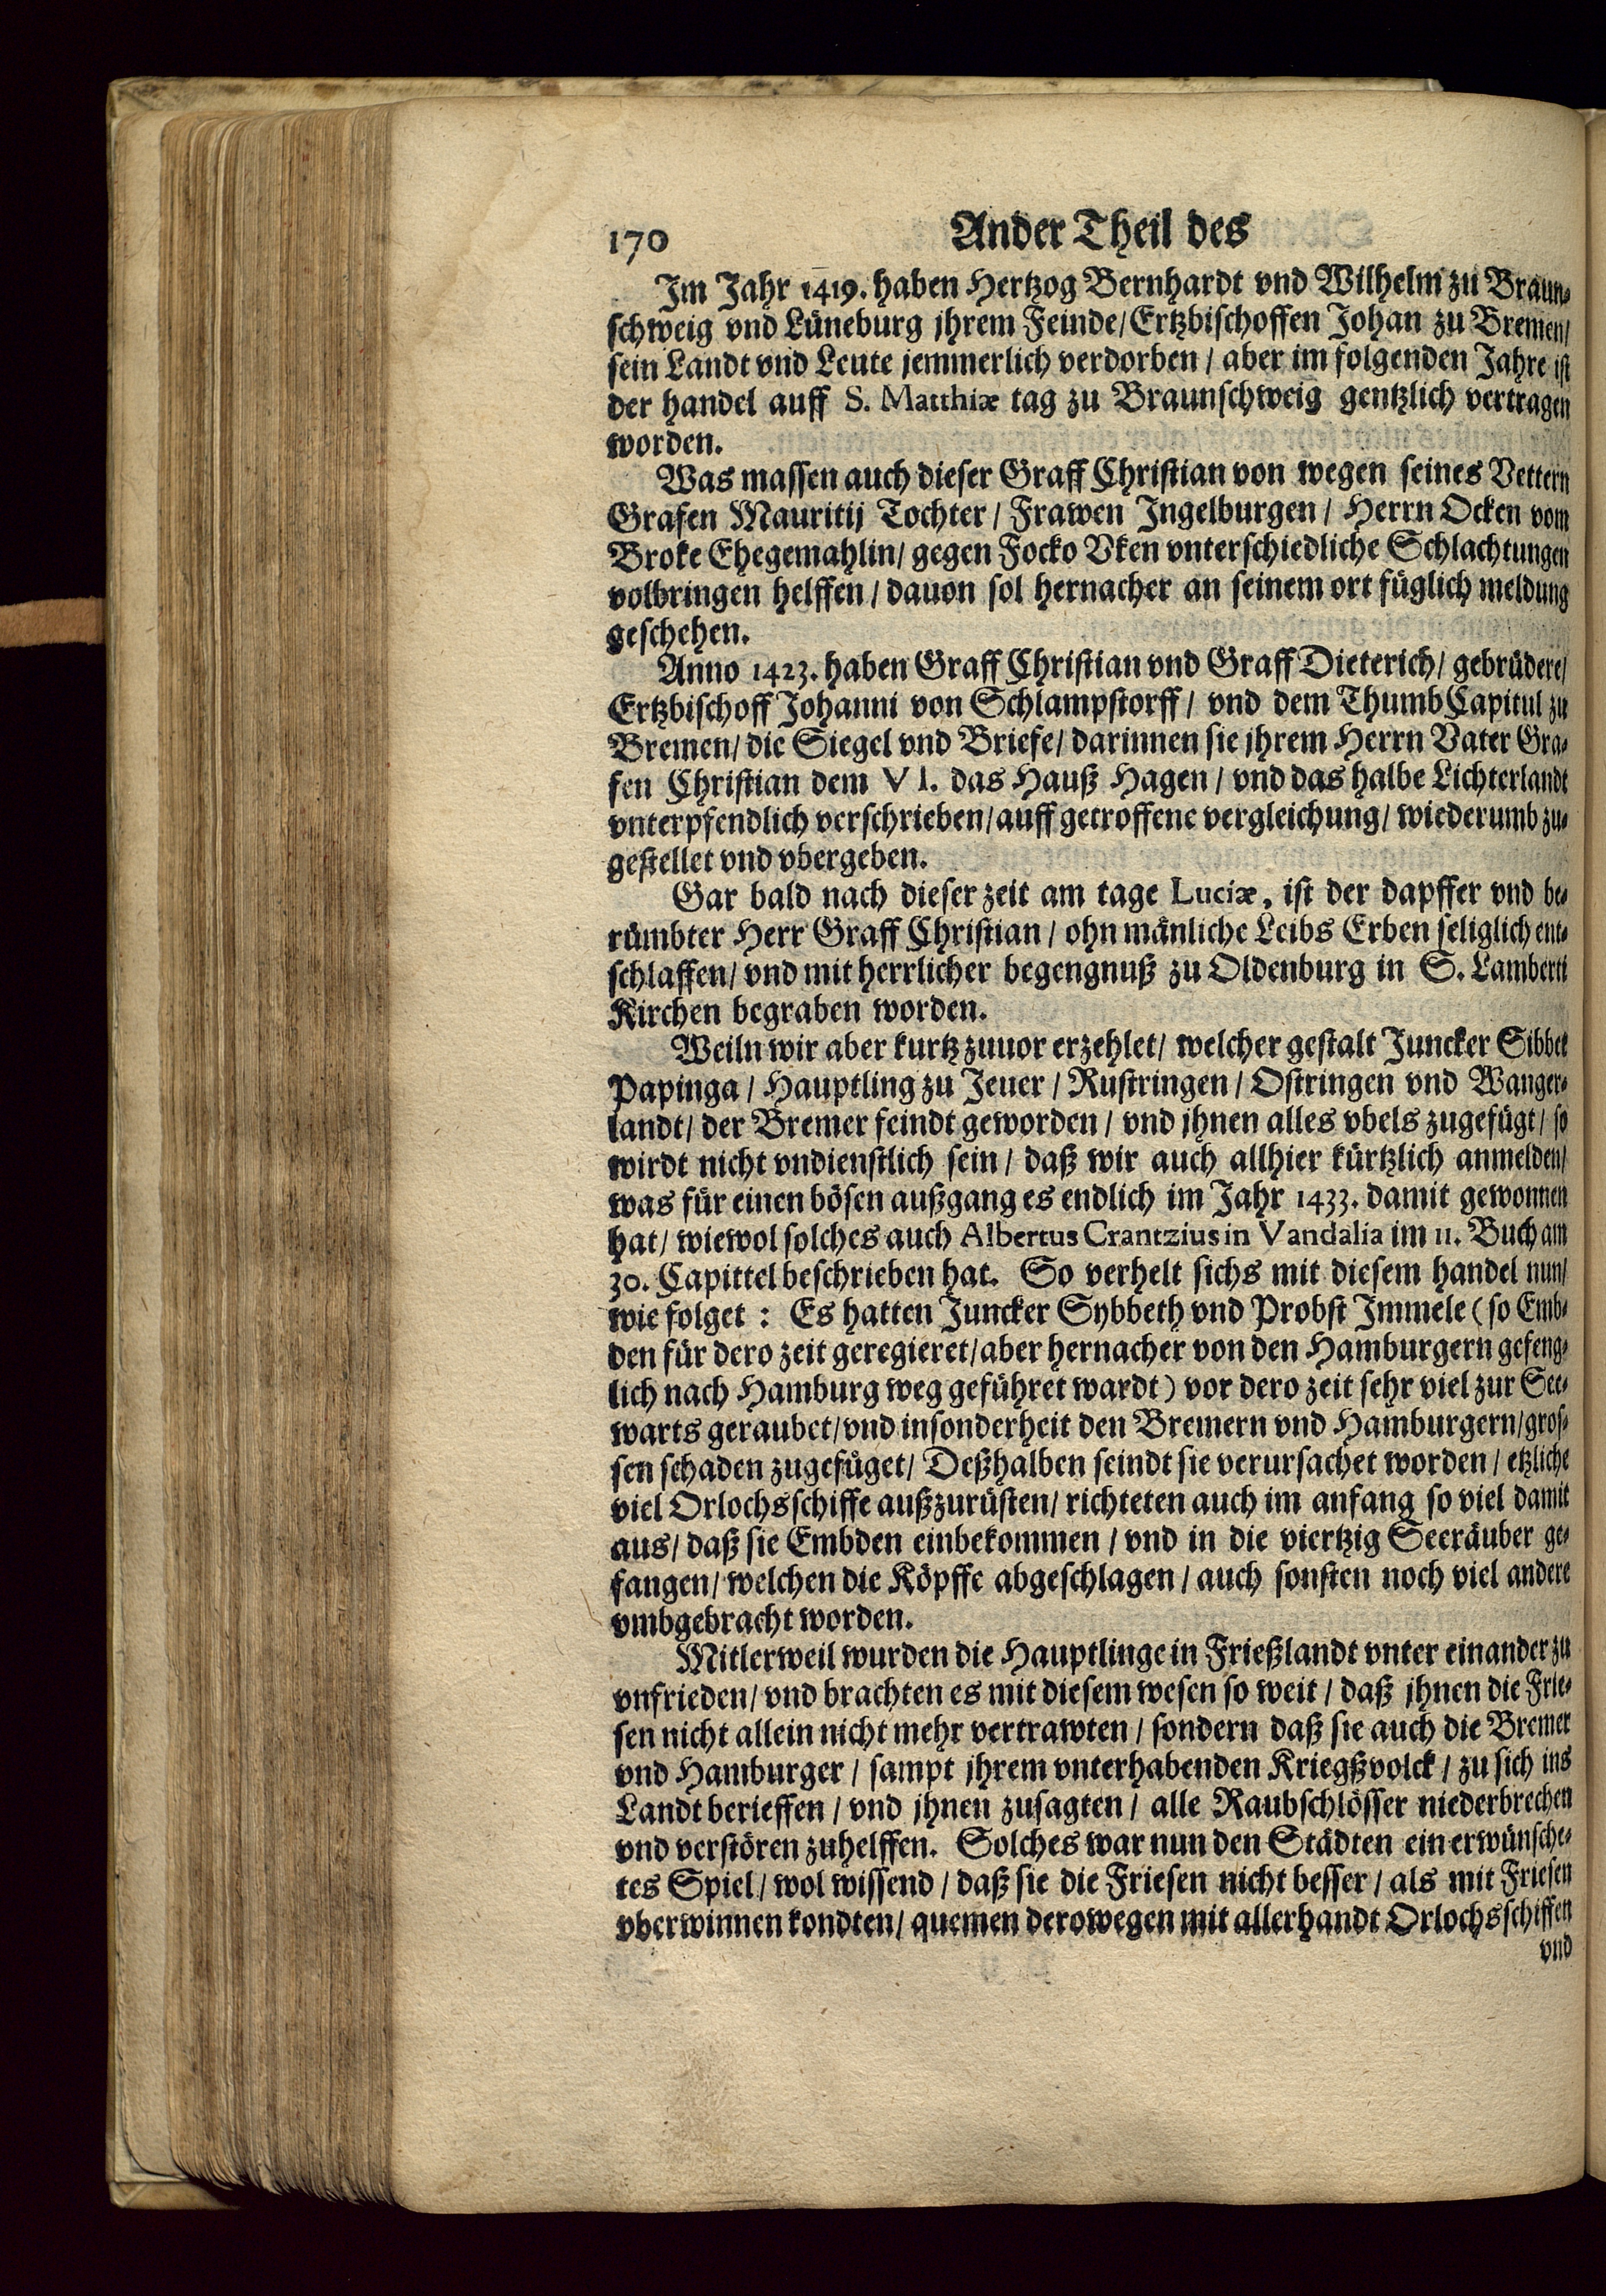 170 Ander Theil des
Im Jahr 1419. haben Hertzog Bernhardt vnd Wilhelm zu Braun-
schweig vnd Lüneburg jhrem Feinde/ Ertzbischoffen Johan zu Bremen/
sein Landt vnd Leute jemmerlich verdorben / aber im folgenden Jahre ist
der handel auff S. Matthiæ tag zu Braunschweig gentzlich vertragen
worden.
Was massen auch dieser Graff Christian von wegen seines Vettern
Grafen Mauritij Tochter / Frawen Ingelburgen / Herrn Ocken vom
Broke Ehegemahlin/ gegen Focko Vken vnterschiedliche Schlachtungen
volbringen helffen / dauon sol hernacher an seinem ort füglich meldung
geschehen.
Anno 1423. haben Graff Christian vnd Graff Dieterich/ gebrüdere/
Ertzbischoff Johanni von Schlampstorff / vnd dem ThumbCapitul zu
Bremen/ die Siegel vnd Briefe/ darinnen sie jhrem Herrn Vater Gra-
fen Christian dem VI. das Hauß Hagen / vnd das halbe Lichterlandt
vnterpfendlich verschrieben/ auff getroffene vergleichung/ wiederumb zu-
gestellet vnd vbergeben.
Gar bald nach dieser zeit am tage Luciæ, ist der dapffer vnd be-
rümbter Herr Graff Christian / ohn mänliche Leibs Erben seliglich ent-
schlaffen/ vnd mit herrlicher begengnuß zu Oldenburg in S. Lamberti
Kirchen begraben worden.
Weiln wir aber kurtz zuuor erzehlet/ welcher gestalt Juncker Sibbet
Papinga / Hauptling zu Jeuer / Rustringen / Ostringen vnd Wanger-
landt/ der Bremer feindt geworden / vnd jhnen alles vbels zugefügt/ so
wirdt nicht vndienstlich sein / daß wir auch allhier kürtzlich anmelden/
was für einen bösen außgang es endlich im Jahr 1433. damit gewonnen
hat/ wiewol solches auch Albertus Crantzius in Vandalia im 11. Buch am
30. Capittel beschrieben hat. So verhelt sichs mit diesem handel nun/
wie folget : Es hatten Juncker Sybbeth vnd Probst Immele (so Emb-
den für dero zeit geregieret/ aber hernacher von den Hamburgern gefeng-
lich nach Hamburg weg geführet wardt) vor dero zeit sehr viel zur See-
warts geraubet/ vnd insonderheit den Bremern vnd Hamburgern/ gros-
sen schaden zugefüget/ Deßhalben seindt sie verursachet worden / etzliche
viel Orlochsschiffe außzurüsten/ richteten auch im anfang so viel damit
aus/ daß sie Embden einbekommen / vnd in die viertzig Seeräuber ge-
fangen/ welchen die Köpffe abgeschlagen / auch sonsten noch viel andere
vmbgebracht worden.
Mitlerweil wurden die Hauptlinge in Frießlandt vnter einander zu
vnfrieden/ vnd brachten es mit diesem wesen so weit / daß jhnen die Frie-
sen nicht allein nicht mehr vertrawten / sondern daß sie auch die Bremer
vnd Hamburger / sampt jhrem vnterhabenden Kriegßvolck / zu sich ins
Landt berieffen / vnd jhnen zusagten / alle Raubschlösser niederbrechen
vnd verstören zuhelffen. Solches war nun den Städten ein erwünsche-
tes Spiel / wol wissend / daß sie die Friesen nicht besser / als mit Friesen
vberwinnen kondten/ quemen derowegen mit allerhandt Orlochsschiffen
vnd